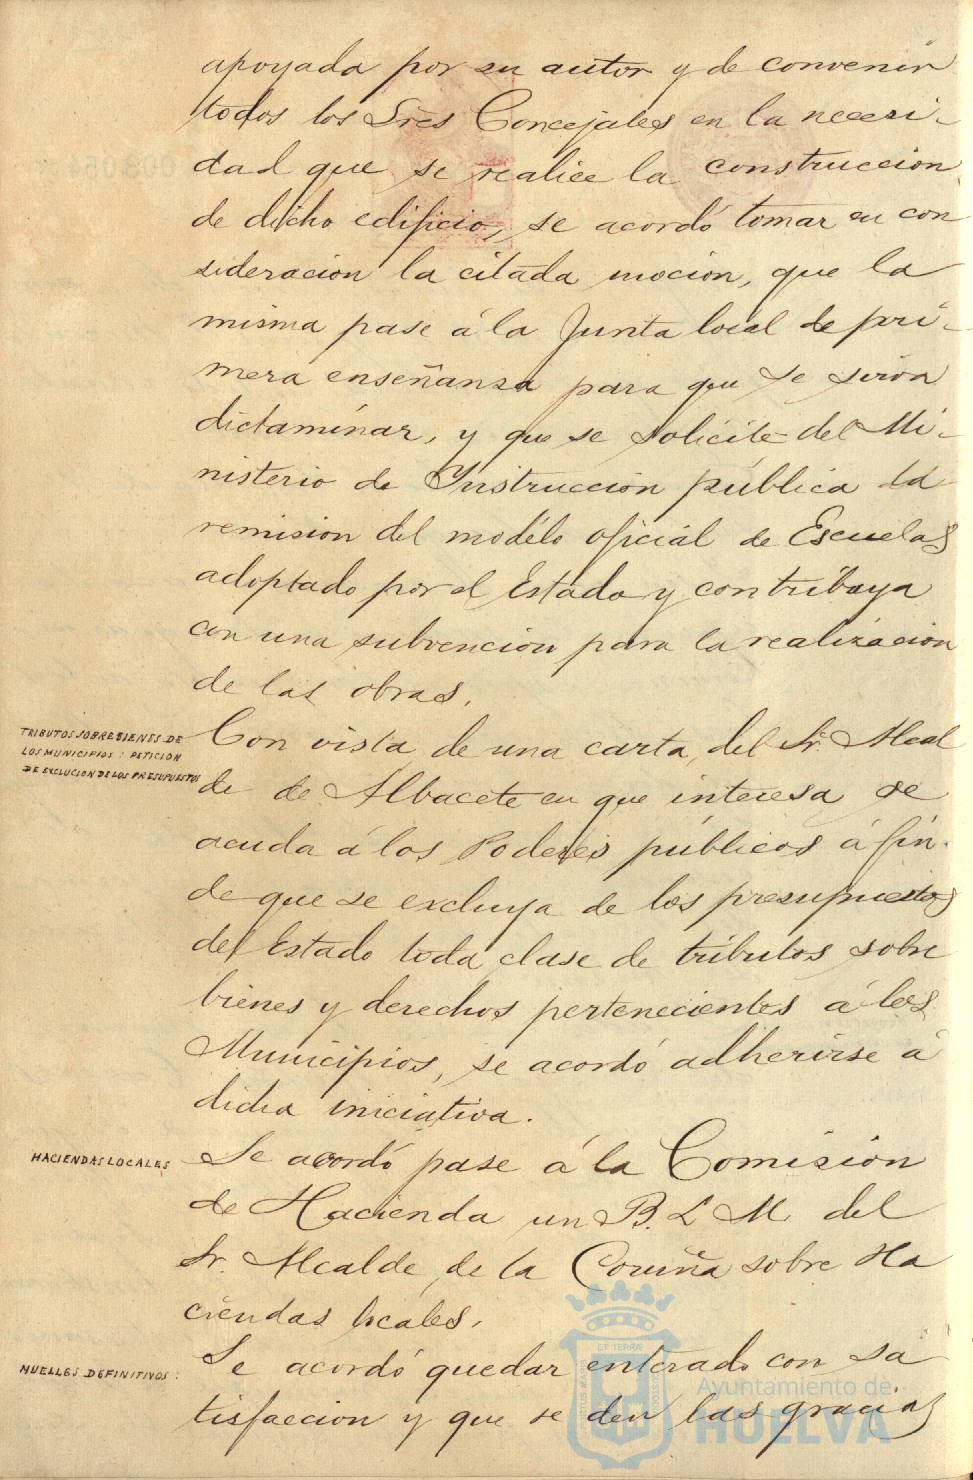 apoyada por su autor y de convenir
todos los Sres Concejales en la necesi-
dad que se realice la construccion
de dicho edificio, se acordó tomar en con
sideracion la citada mocion, que la
misma pase á la Junta local de pri-
mera enseñanza para que se sirva
dictaminar, y que se solicite del Mi-
nisterio de Instruccion pública la
remision del modelo oficial de Escuelas
adoptado por el Estado y contribuya
con una subvencion para la realizacion
de las obras.
TRIBUTOS SOBRE BIENES DE
LOS MUNICIPIOS: PETICION
DE EXCLUCION DE LOS PRESUPUESTOS
Con vista de una carta del Sr. Alcal
de de Albacete en que interesa se
acuda á los Poderes públicos á fin
de que se excluya de los presupuestos
del Estado toda clase de tributos sobre
bienes y derechos pertenecientes á los
Municipios, se acordó adherirse á
dicha iniciativa.
HACIENDAS LOCALES
Se acordó pase á la Comision
de Hacienda un B. L. M. del
Sr. Alcalde de la Coruña sobre Ha
ciendas locales.
MUELLES DEFINITIVOS:
Se acordó quedar enterado con sa
tisfaccion y que se den las gracias
Ayuntamiento de
HUELVA